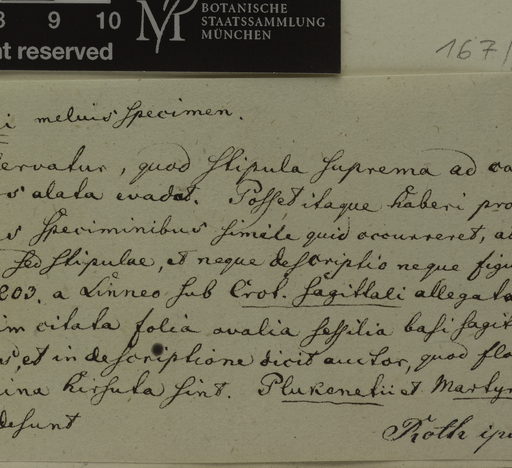 8 9 10
BOTANISCHE
STAATSSAMMLUNG
MÜNCHEN
nt reserved
167/
i meluis Specimen.
ervatur, quod Stipula suprema ad ca
s alata evadat. Posset itaque haberi pro
s Speciminibus simile quid occurreret, a
sed Stipulae, et neque descriptio neque figu
203. a Linneo sub Crot. Sagittali allegata
im citata folia ovalia sessilia basi sagit
s, et in descriptione dicit auctor, quod flo
ina hirsuta sint. Plukenetii et Martyn
desunt
Roth ip